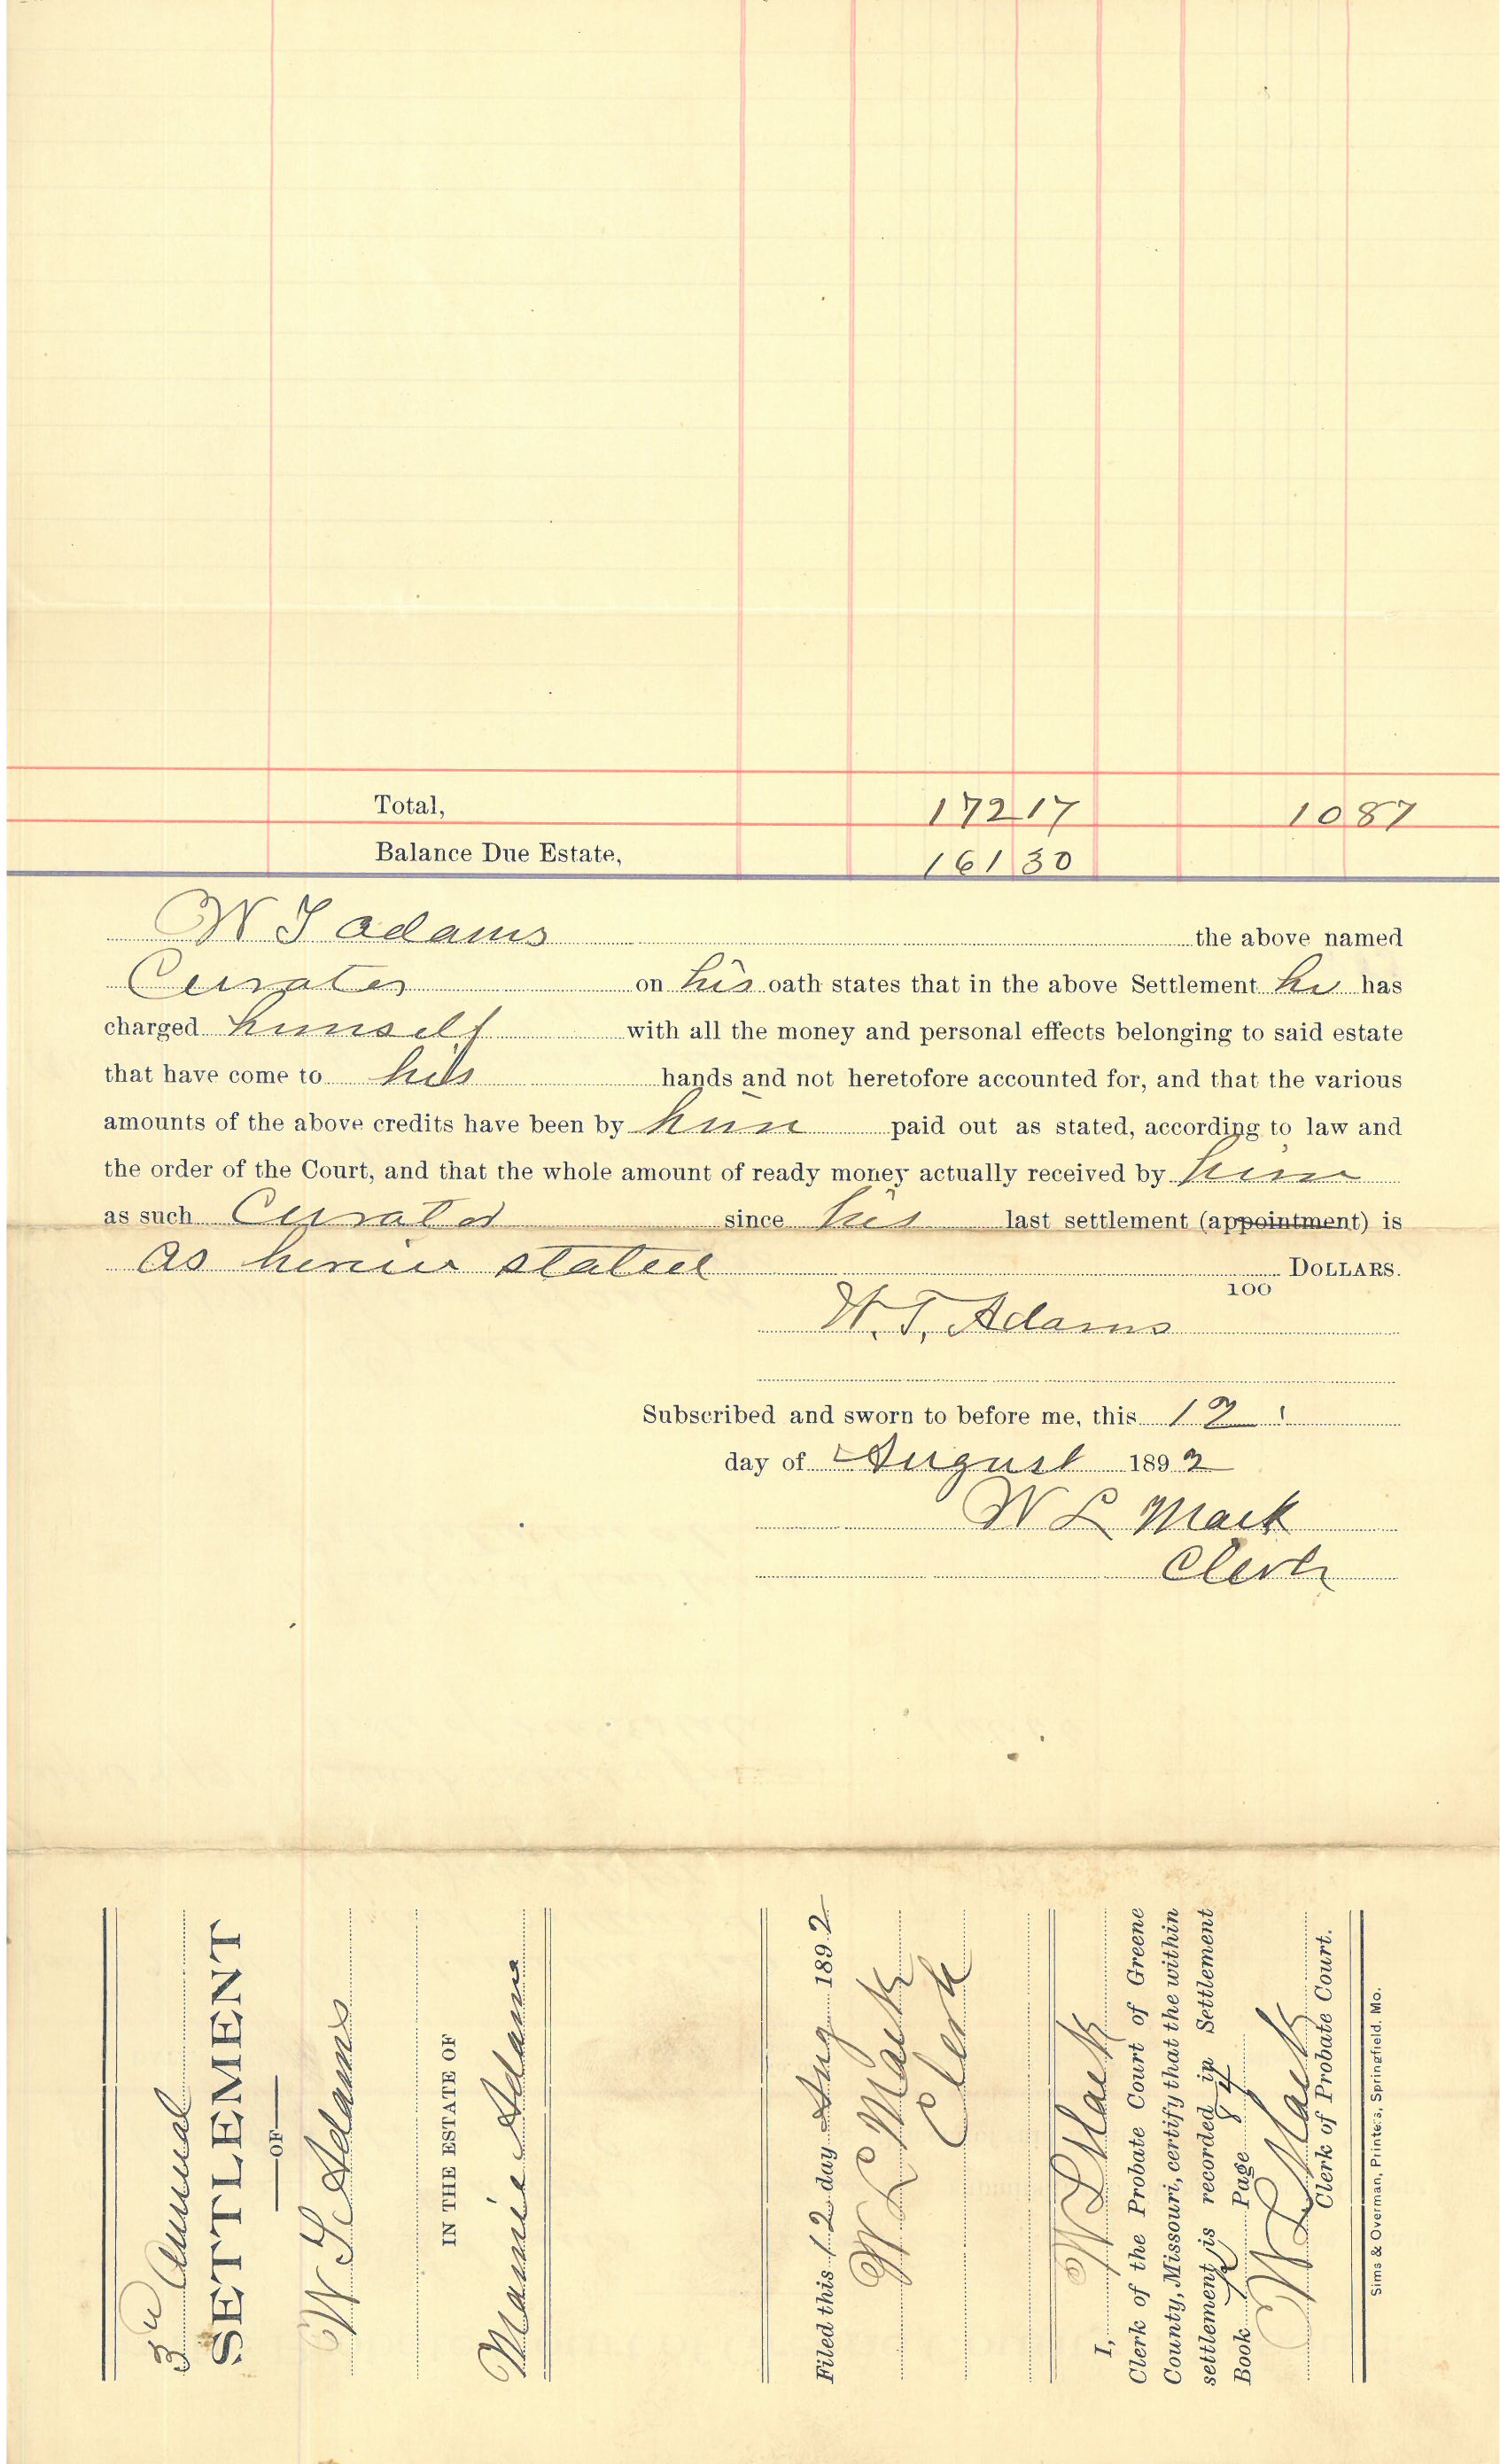 Total, 172 17 10 87
Balance Due Estate, 161 30
W T Adams the above named
Curator on his oath states that in the above Settlement he has
charged himself with all the money and personal effects belonging to said estate
that have come to his hands and not heretofore accounted for, and that the various
amounts of the above credits have been by him paid out as stated, according to law and
the order of the Court, and that the whole amount of ready money actually received by him
as such Curator since his last settlement (appointment) is
as herein stated DOLLARS.
100
W. T. Adams
Subscribed and sworn to before me, this 12
day of August 1892
W L Mack
Clerk
3rd Annual
SETTLEMENT
OF
W T Adams
IN THE ESTATE OF
Mannie Adams
Filed this 12 day Aug 1892
W L Mack
Clerk
I, W L Mack
Clerk of the Probate Court of Greene
County, Missouri, certify that the within
settlement is recorded in Settlement
Book Page 84
W L Mack
Clerk of Probate Court.
Sims & Overman, Printers, Springfield, Mo.